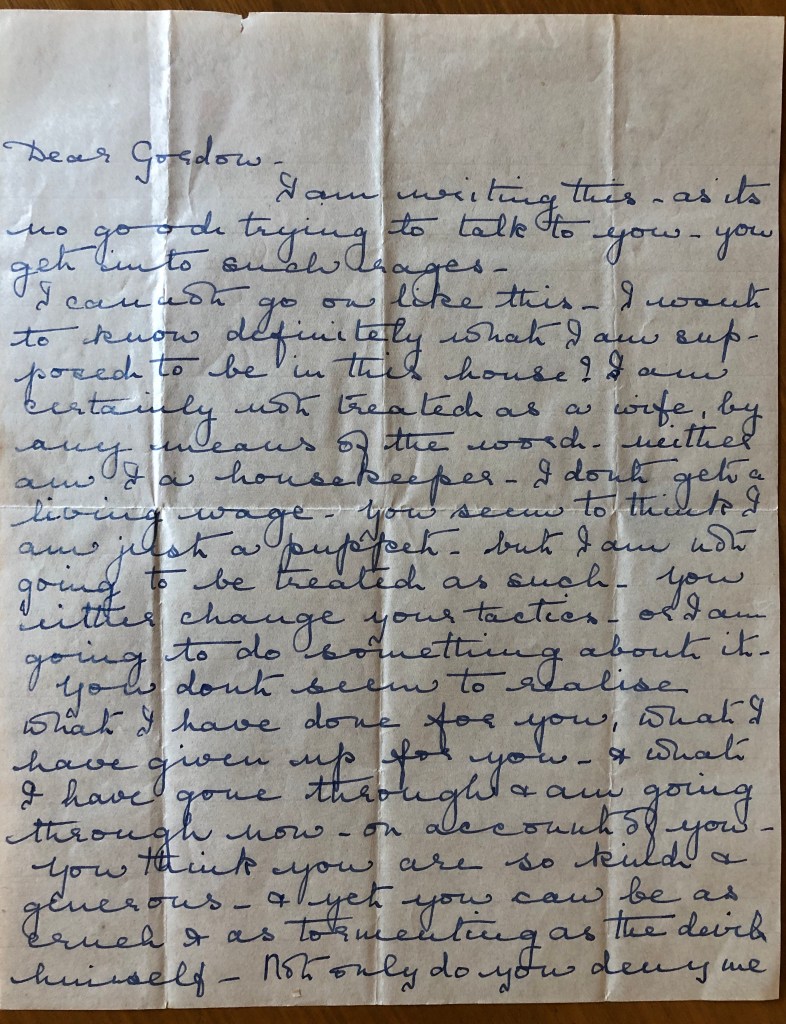 Dear Gordon -
I am writing this - as its
no good trying to talk to you - you
get into such rages -
I cannot go on like this - I want
to know definitely what I am sup-
posed to be in this house? I am
certainly not treated as a wife, by
any means of the word - neither
am I a housekeeper - I dont get a
living wage - you seem to think I
am just a puppet - but I am not
going to be treated as such - you
either change your tactics - or I am
going to do something about it -
You dont seem to realise
what I have done for you, what I
have given up for you - & what
I have gone through & am going
through now - on account of you -
You think you are so kind &
generous - & yet you can be as
cruel & as tormenting as the devil
himself - Not only do you deny me